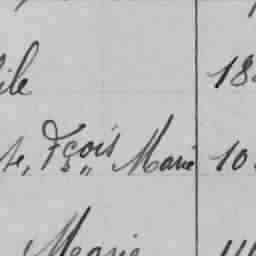 ile 18
te, Fçois Marie 10
Marie